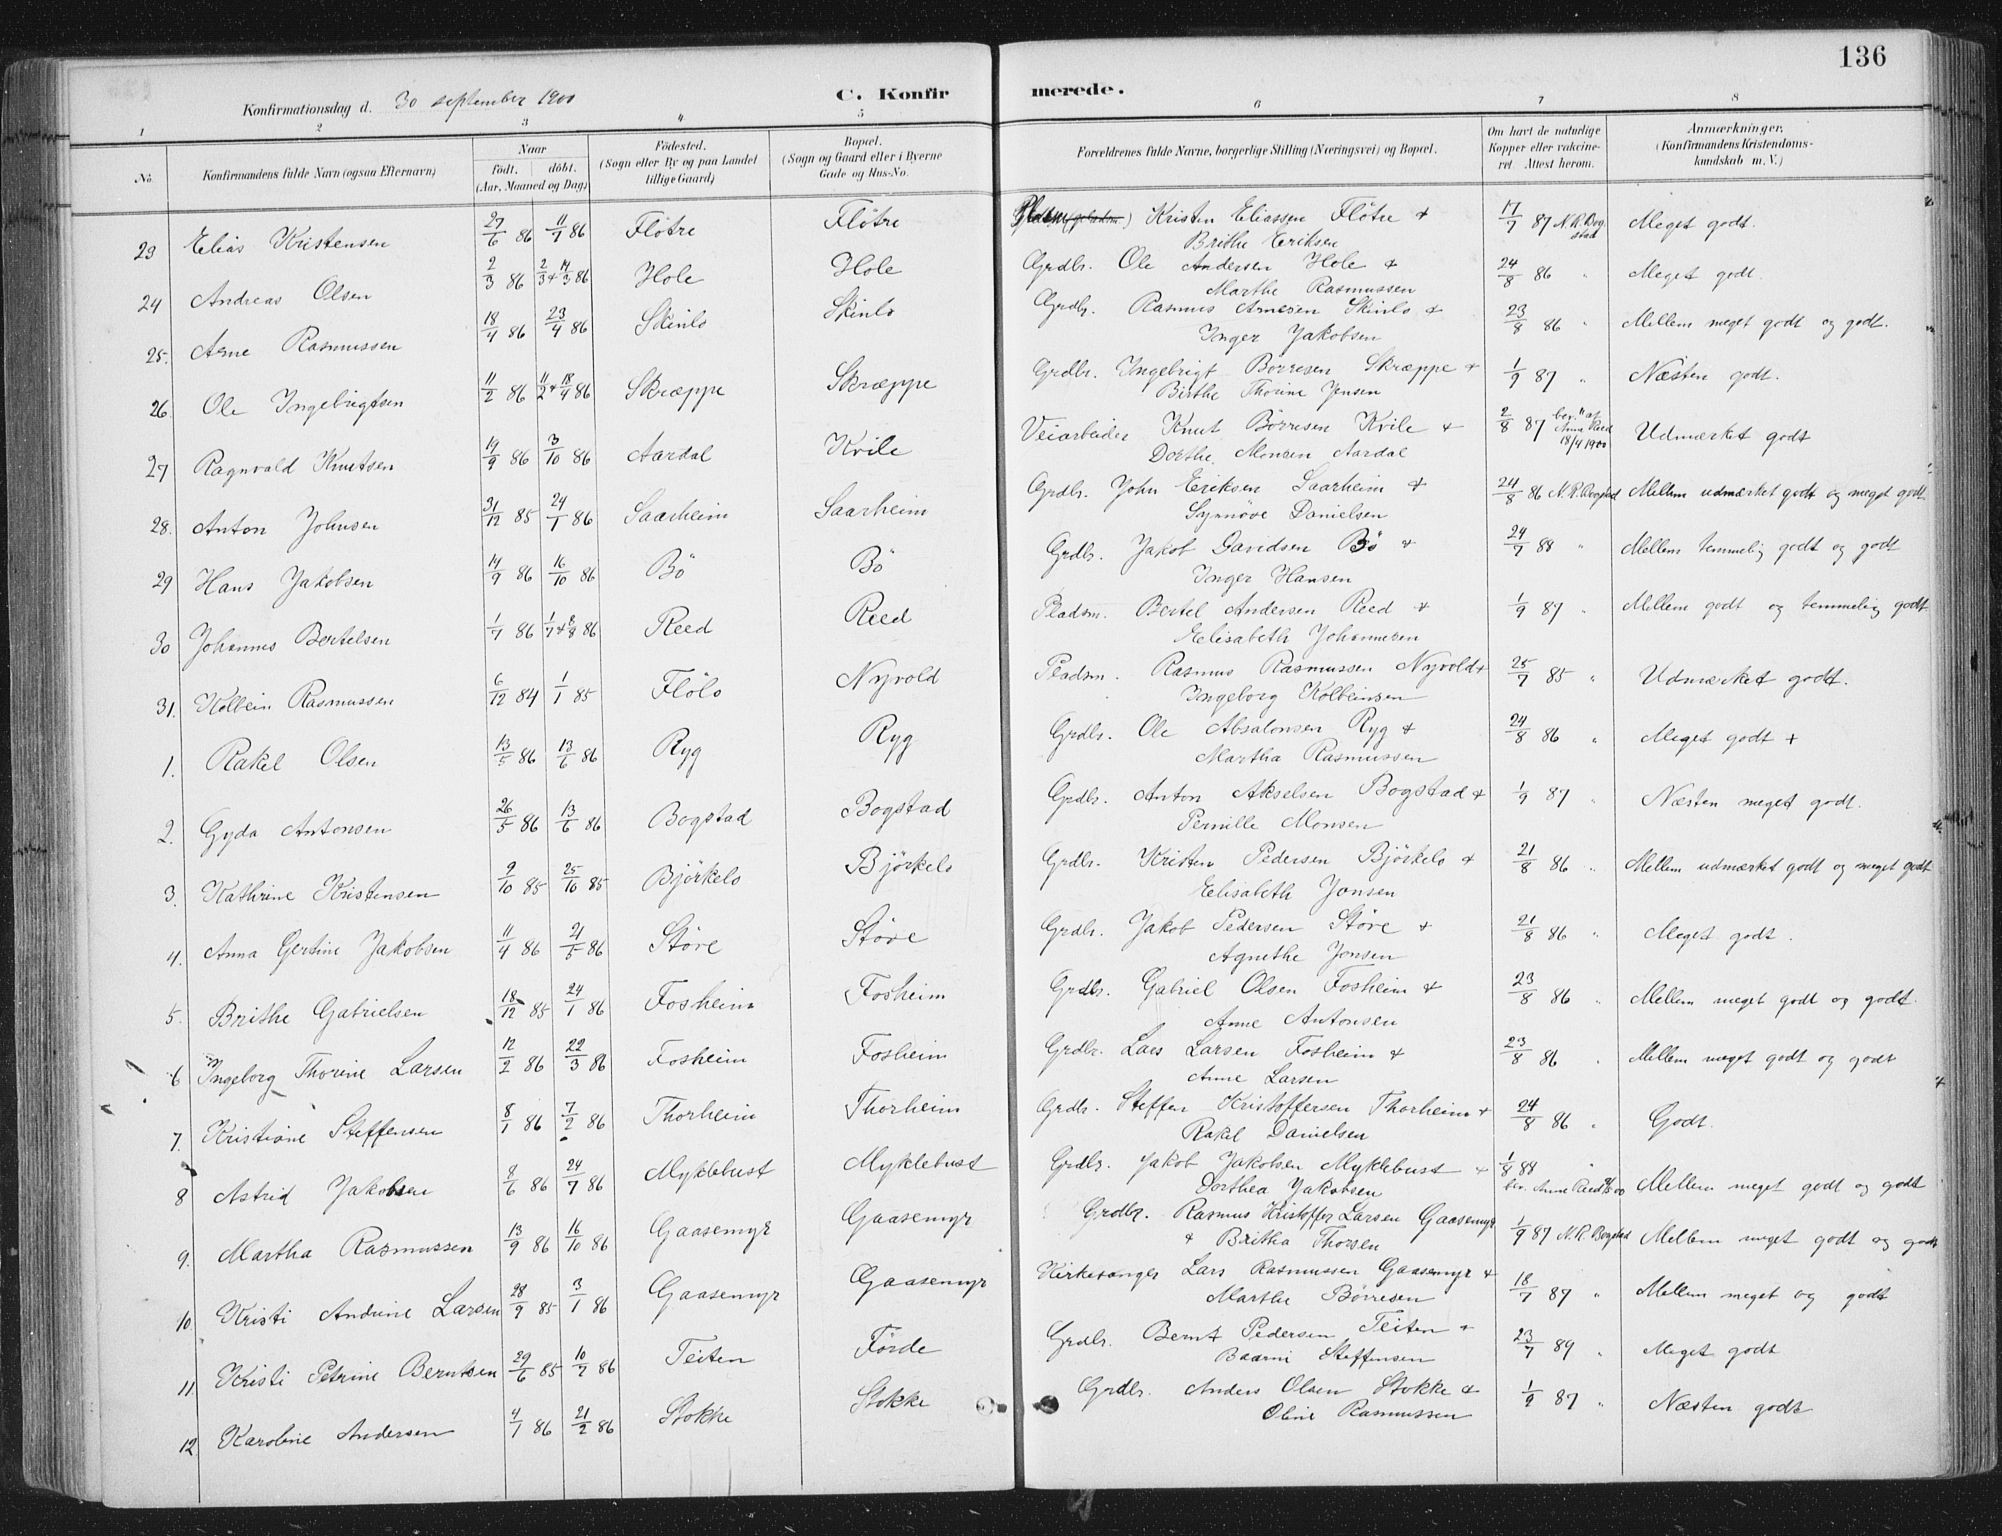 136
Konfirmationsdag d. 30 september 1900
C. Konfirmerede.
1 2 3 4 5 6 7 8
No. Konfirmandens fulde Navn (ogsaa Efternavn) Naar födt. döbt. (Aar, Maaned og Dag) Födested. (Sogn eller By og paa Landet tillige Gaard) Bopæl. (Sogn og Gaard eller i Byerne Gade og Hus-No. Forældrenes fulde Navne, borgerlige Stilling (Næringsvei) og Bopæl. Om havt de naturlige Kopper eller vakcineret. Attest herom. Anmærkninger. (Konfirmandens Kristendomskundskab m. V.)
23 Elias Kristensen 27/6 86 11/7 86 Flötre Flötre Kristen Eliassen Flötre + 17/7 87 N.R. Bogstad Meget godt.
Brithe Eriksen
24 Andreas Olsen 2/3 86 2/3+14/3 86 Hole Hole Grdbr. Ole Andersen Hole + 24/8 86 " Meget godt.
Marthe Rasmussen
25. Arne Rasmussen 18/4 86 23/4 86 Skinlo Skinlo Grdbr. Rasmus Arnesen Skinlo + 23/8 86 " Mellem meget godt og godt.
Inger Jakobsen
26. Ole Ingebrigtsen 11/2 86 11/2+18/4 86 Skræppe Skræppe Grdbr. Ingebrigt Börresen Skræppe + 1/9 87 " Næsten godt.
Birthe Thorine Jensen
27 Ragnvald Knutsen 19/9 86 3/10 86 Aardal Kvile Veiarbeider Knut Börresen Kvile + 2/8 87 bev. af Anna Reed 18/4 1900 Udmærket godt
Dorthe Monsen Aardal
28. Anton Johnsen 31/12 85 24/1 86 Saarheim Saarheim Grdbr. John Eriksen Saarheim + 24/8 86 N.R. Bogstad Mellem udmærket godt og meget godt
Synnöve Danielsen
29 Hans Jakobsen 14/9 86 16/10 86 Bö Bö Grdbr. Jakob Davidsen Bö + 24/7 88 " Mellem temmelig godt og godt
Inger Hansen
30 Johannes Bertelsen 1/7 86 1/7+8/8 86 Reed Reed Pladsm. Bertel Andersen Reed + 1/9 87 " Mellem godt og temmelig godt
Elisabeth Johannesen
31. Kolbein Rasmussen 6/12 84 1/1 85 Flölo Nyvold Pladsm. Rasmus Rasmussen Nyvold + 25/7 85 " Udmærket godt.
Ingeborg Kolbeinsen
1. Rakel Olsen 13/5 86 13/6 86 Ryg Ryg Grdbr. Ole Absalonsen Ryg + 24/8 86 " Meget godt +
Martha Rasmussen
2. Gyda Antonsen 26/5 86 13/6 86 Bogstad Bogstad Grdbr. Anton Akselsen Bogstad + 1/9 87 " Næsten meget godt.
Pernille Monsen
3. Kathrine Kristensen 9/10 85 25/10 85 Björkelo Björkelo Grdbr. Kristen Pedersen Björkelo + 21/8 86 " Mellem udmærket godt og meget godt
Elisabeth Jonsen
4. Anna Gertine Jakobsen 11/4 86 21/5 86 Störe Störe Grdbr. Jakob Pedersen Störe + 21/8 86 " Meget godt.
Agnethe Jonsen
5. Brithe Gabrielsen 18/12 85 24/1 86 Fosheim Fosheim Grdbr. Gabriel Olsen Fosheim + 23/8 86 " Mellem meget godt og godt.
Anne Antonsen
6 Ingeborg Thorine Larsen 12/2 86 22/3 86 Fosheim Fosheim Grdbr. Lars Larsen Fosheim + 23/8 86 " Mellem meget godt og godt
Anne Larsen
7. Kristiane Steffensen 8/1 86 7/2 86 Thorheim Thorheim Grdbr. Steffen Kristoffersen Thorheim + 24/8 86 " Godt.
Rakel Danielsen
8 Astrid Jakobsen 8/6 86 24/7 86 Myklebust Myklebust Grdbr. Jakob Jakobsen Myklebust + 1/8 88 bev. Anne Reed Mellem meget godt og godt
Dorthea Jakobsen
9. Martha Rasmussen 13/9 86 16/10 86 Gaasemyr Gaasemyr Grdbr. Rasmus Kristoffer Larsen Gaasemyr 1/9 87 N.R. Bogstad Mellem meget godt og godt
+ Britha Thorsen
10 Kristi Andrine Larsen 28/9 85 3/1 86 Gaasemyr Gaasemyr Kirkesanger Lars Rasmussen Gaasemyr + 18/7 87 " Mellem meget og godt
Marthe Börresen
11. Kristi Petrine Berntsen 29/6 85 10/7 86 Teiten Förde Grdbr. Bernt Pedersen Teiten + 23/7 89 " Meget godt
Steffensen
12 Karoline Andersen 4/1 86 21/2 86 Stokke Stokke Grdbr. Anders Olsen Stokke + 1/9 87 " Næsten godt
Oline Rasmussen